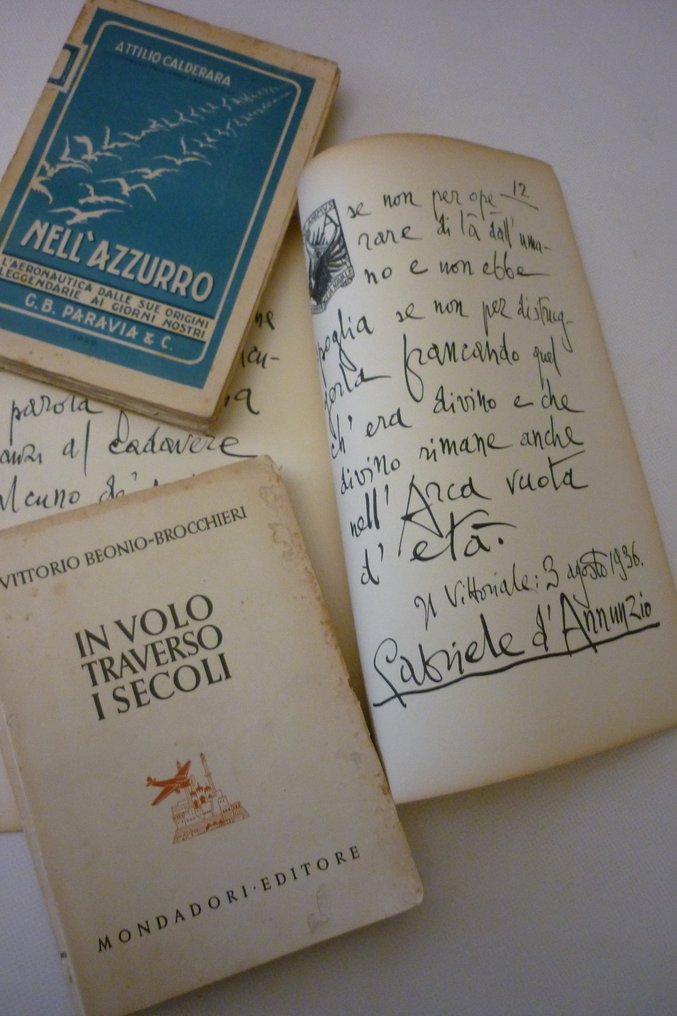 ATTILIO CALDERARA
NELL'AZZURRO
L'AERONAUTICA DALLE SUE ORIGINI
LEGGENDARIE AI GIORNI NOSTRI
G. B. PARAVIA & C.
12
se non per ope-
rare di là dall'uma-
no e non ebbe
spoglia se non per distrug-
gerla francando quel
ch'era divino e che
divino rimane anche
nell'Arca vuota
d'età.
Il Vittoriale: 3 agosto 1936.
Gabriele d'Annunzio
parola
al cadavere
VITTORIO BEONIO-BROCCHIERI
IN VOLO
TRAVERSO
I SECOLI
MONDADORI·EDITORE